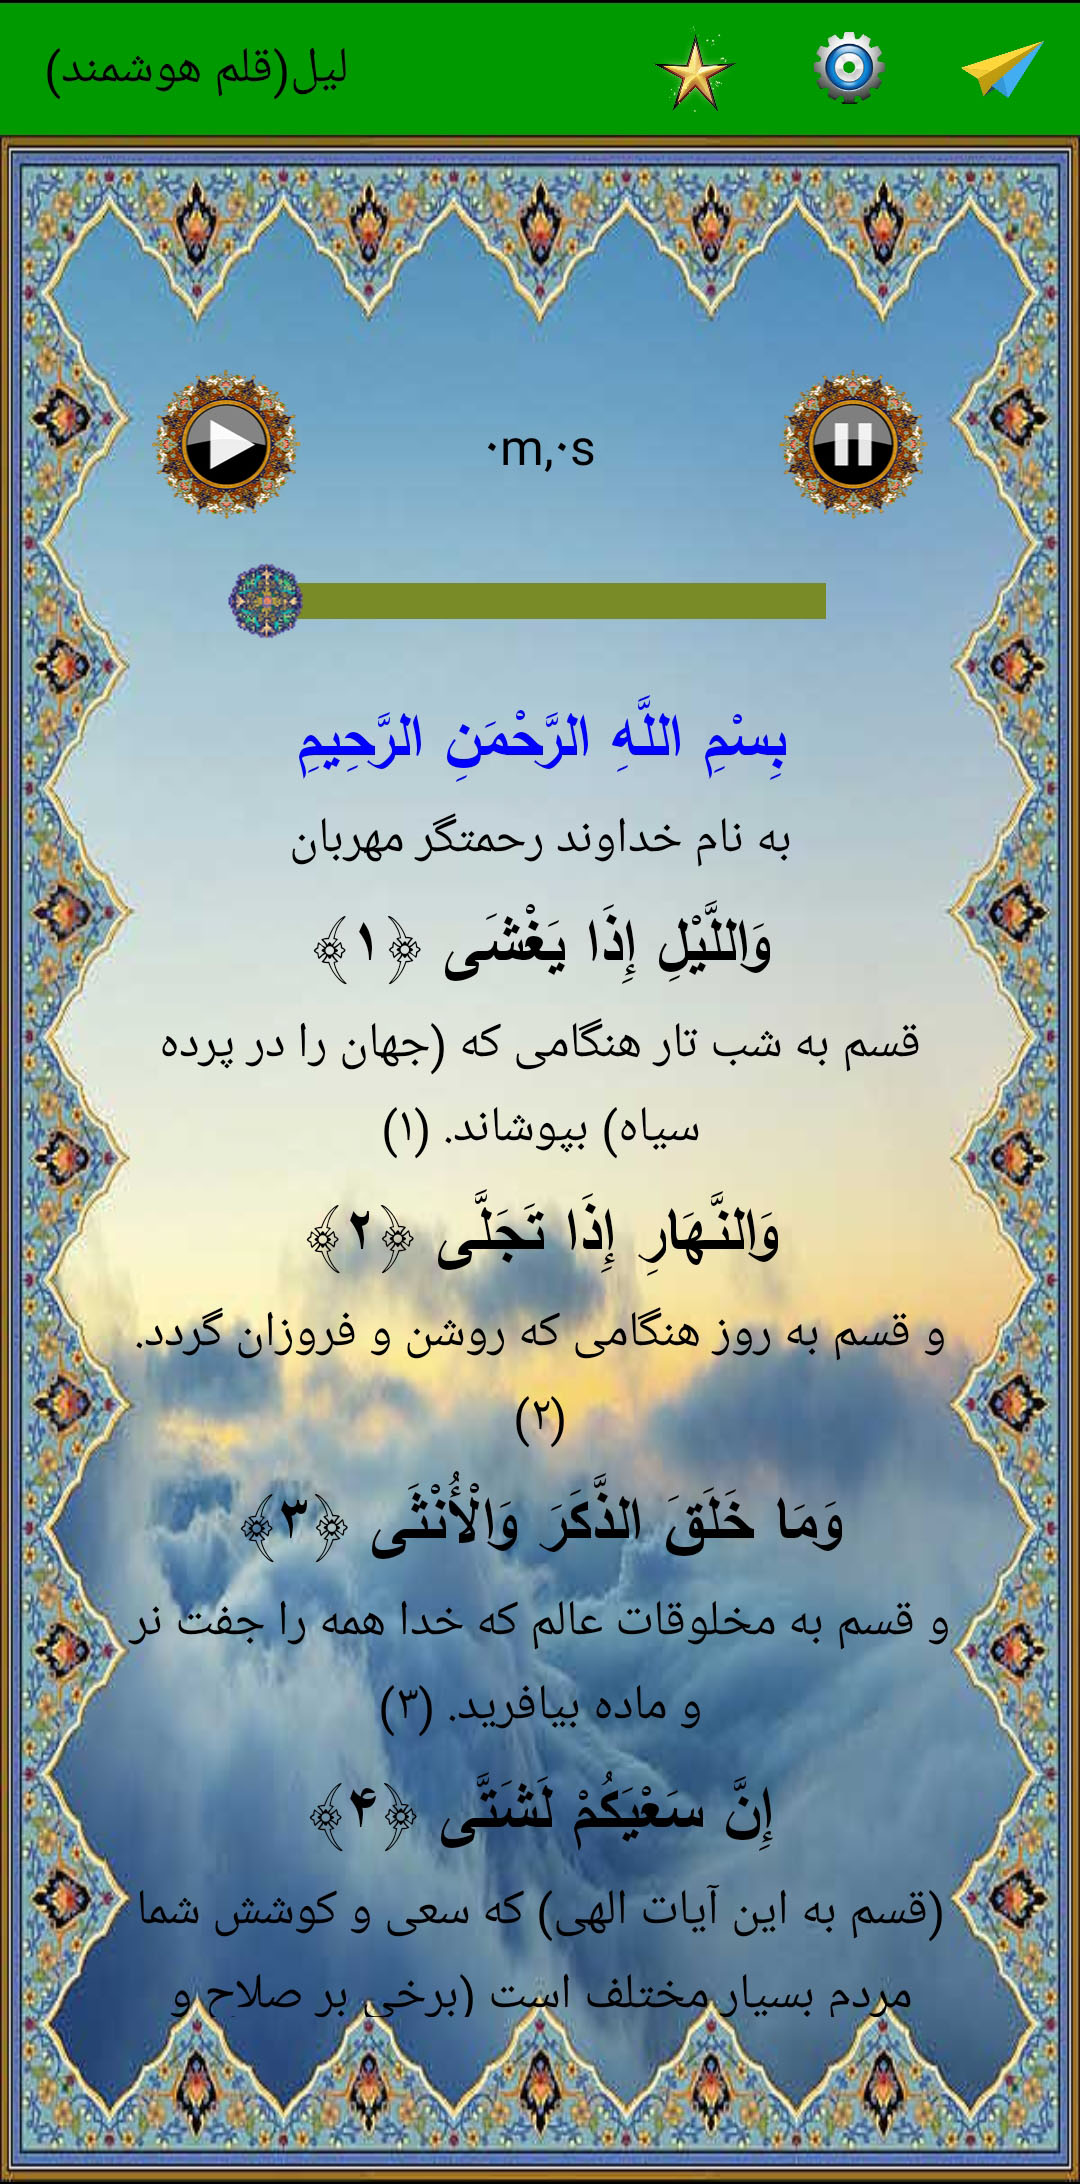 لیل(قلم هوشمند)
۰m,۰s
بِسْمِ اللَّهِ الرَّحْمَنِ الرَّحِيمِ
به نام خداوند رحمتگر مهربان
وَاللَّيْلِ إِذَا يَغْشَى ﴿۱﴾
قسم به شب تار هنگامی که (جهان را در پرده
سیاه) بپوشاند. (۱)
وَالنَّهَارِ إِذَا تَجَلَّى ﴿۲﴾
و قسم به روز هنگامی که روشن و فروزان گردد.
(۲)
وَمَا خَلَقَ الذَّكَرَ وَالْأُنْثَى ﴿۳﴾
و قسم به مخلوقات عالم که خدا همه را جفت نر
و ماده بیافرید. (۳)
إِنَّ سَعْيَكُمْ لَشَتَّى ﴿۴﴾
(قسم به این آیات الهی) که سعی و کوشش شما
مردم بسیار مختلف است (برخی بر صلاح و